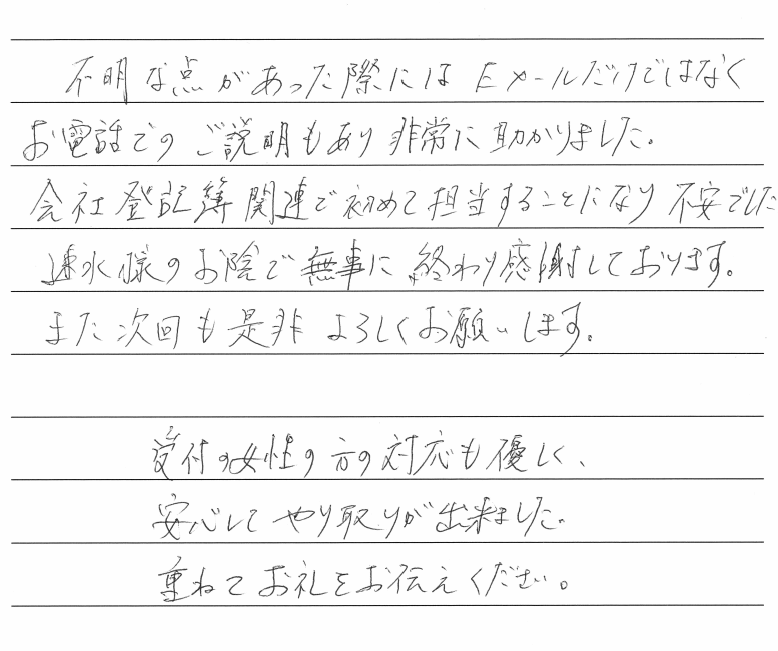 不明な点があった際にはEメールだけではなく
お電話でのご説明もあり非常に助かりました。
会社登記簿関連で初めて担当することになり不安でした
速水様のお陰で無事に終わり感謝しております。
また次回も是非よろしくお願いします。
受付の女性の方の対応も優しく、
安心してやり取りが出来ました。
重ねてお礼をお伝えください。